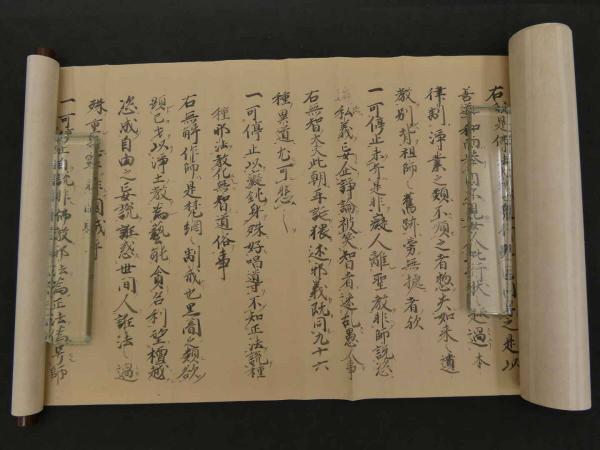 右説是佛
善導和而
律制淨業之類不順之者惣失如来遺
教別背祖師之舊跡旁無據者欤
一可停止未弁是非癡人離聖教非師説恣
私義妄企諍論被笑智者迷乱愚人事
右無智大天此朝再誕猥述邪義既同九十六
種異道尤可悲之
一可停止以癡鈍身殊好唱導不知正法説種
種邪法教化無智道俗事
右無解作師是梵網之制戒也黒闇之類欲
顕己才以淨土教為藝能貪名利望檀越
恣成自由之妄説誑惑世間人誑法之過
殊重
一可停止自説非佛教邪法為正法為号師